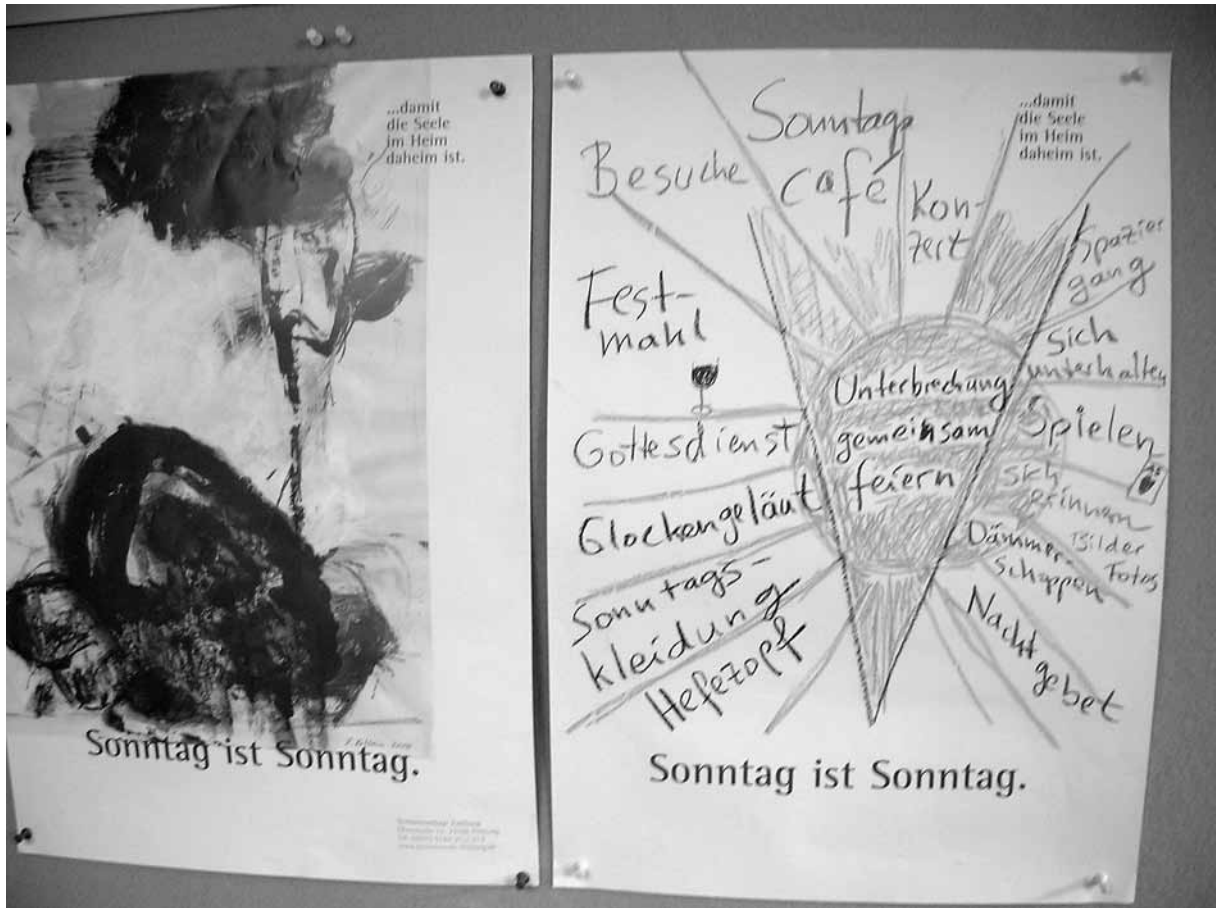 ...damit
die Seele
im Heim
daheim ist.
Sonntag ist Sonntag.
...damit
die Seele
im Heim
daheim ist.
Sonntags
café
Besuche
Kon-
zert
Spazier
gang
Fest-
mahl
sich
unterhalten
Unterbrechung
gemeinsam
feiern
Gottesdienst
Spielen
Glockengeläut
sich
erinnern
Bilder
Fotos
Dämmer-
schoppen
Sonntags-
kleidung
Hefezopf
Nacht
gebet
Sonntag ist Sonntag.